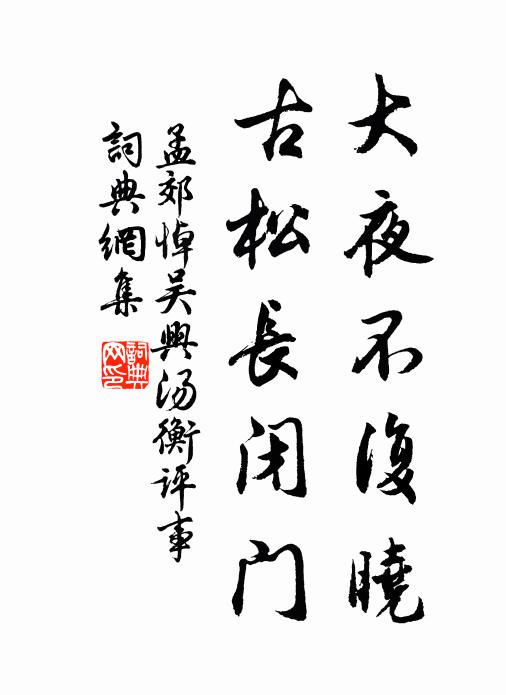 大夜不復曉
古松長閉門
孟郊悼吴興湯衡評事
詞典網集
詞典網印